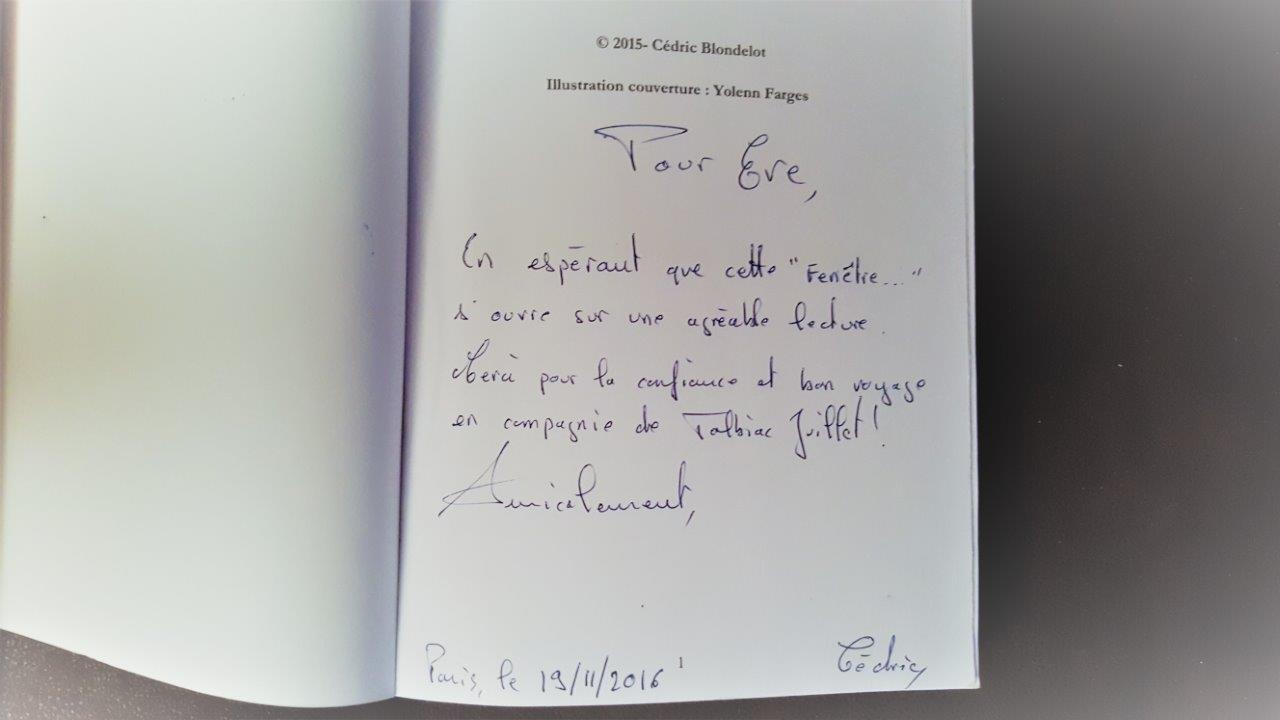 © 2015- Cédric Blondelot
Illustration couverture : Yolenn Farges
Pour Eve,
En espérant que cette "Fenêtre..."
s'ouvre sur une agréable lecture.
Merci pour la confiance et bon voyage
en compagnie de Tolbiac Juillet !
Amicalement,
Cédric
Paris, le 19/11/2016
1